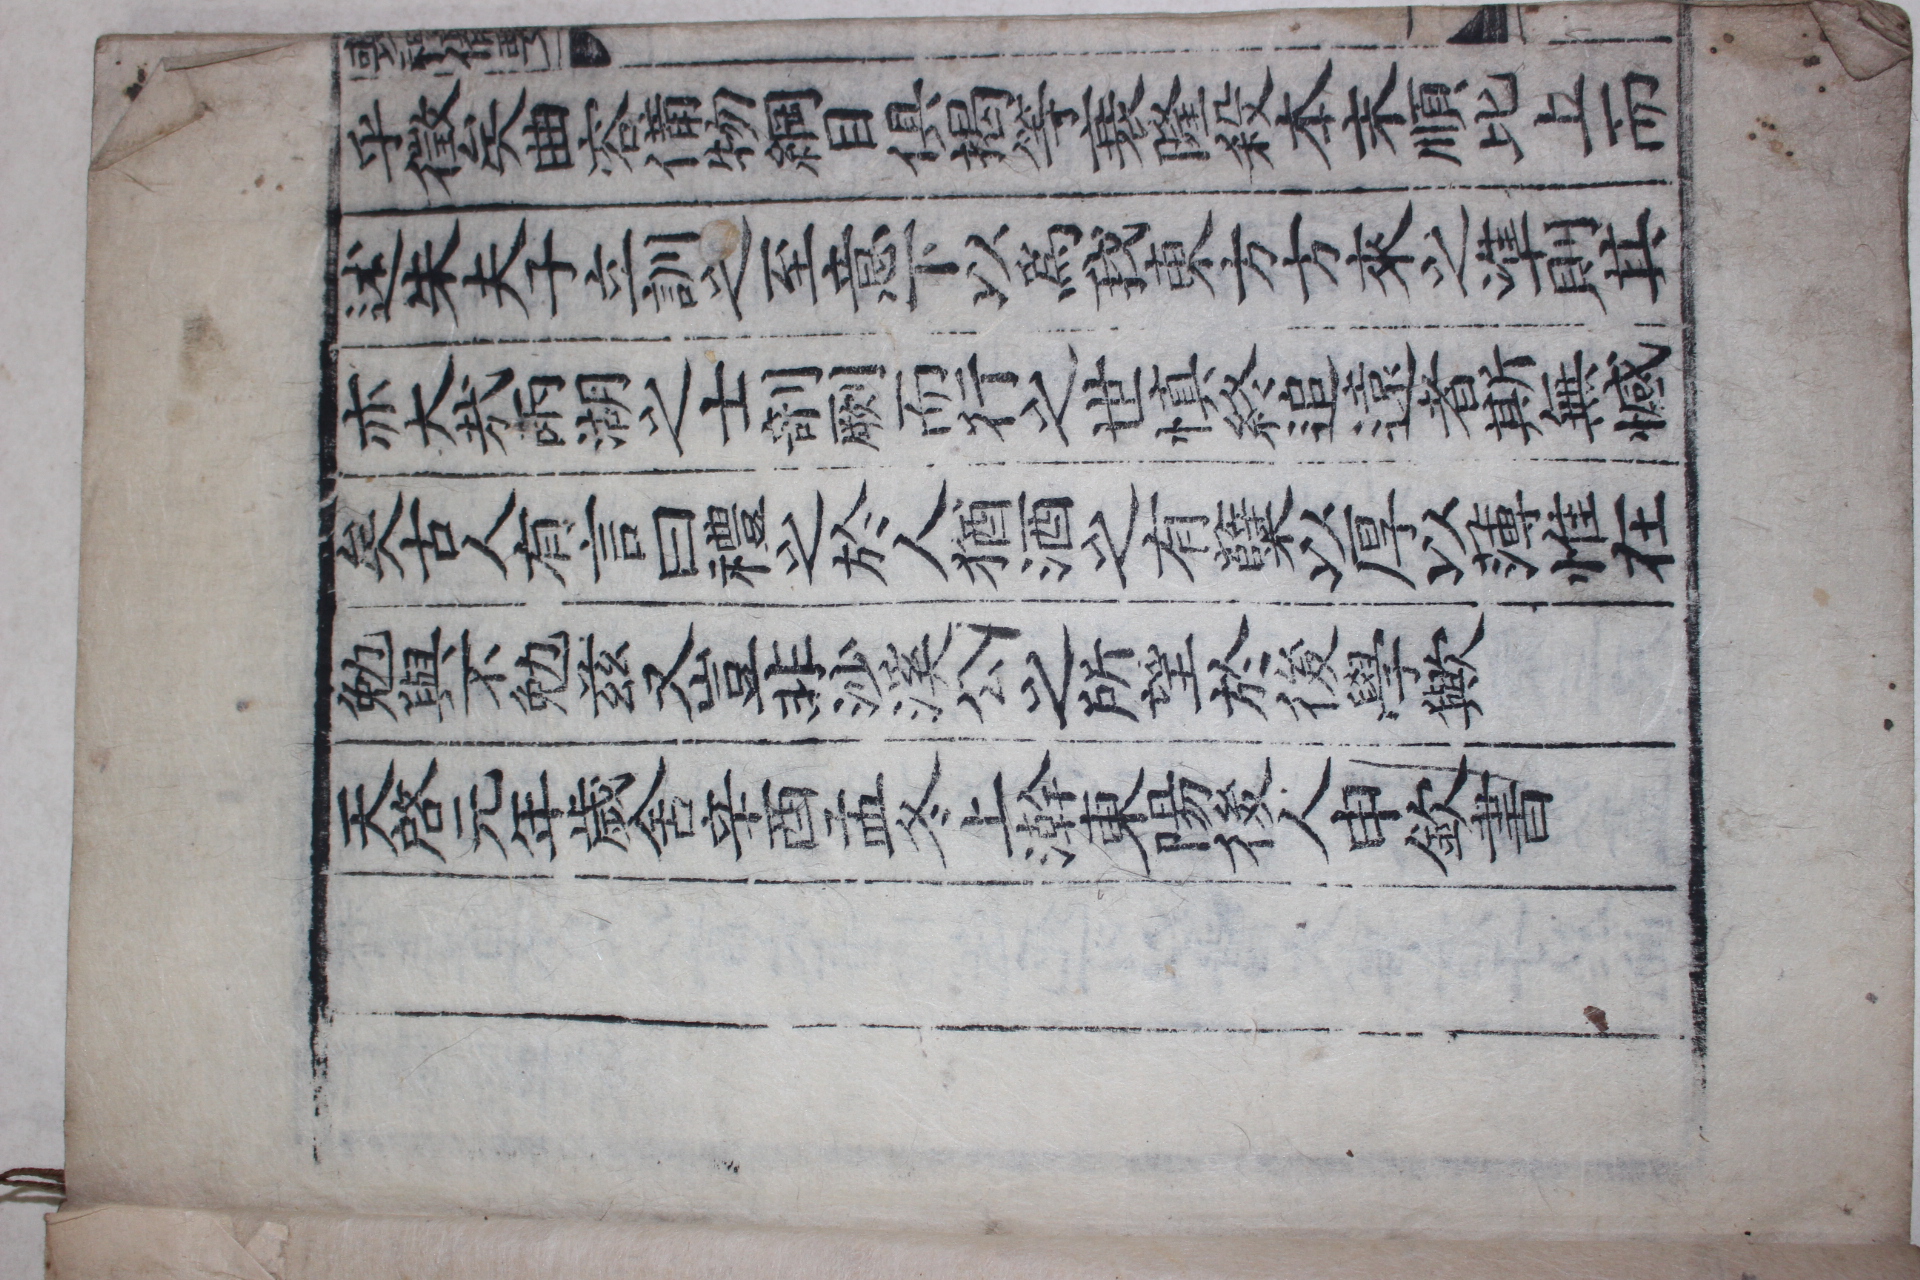 乎僅矣由容備物綱目俱揭等衰隆殺本末順比上而
述朱夫子立訓之至意下以爲我東方方來之準則其
亦大哉兩湖之士剞劂而行之世愼終追遠者斯無憾
矣古人有言曰禮之於人猶酒之有糱以厚以薄惟在
勉與不勉玆又豈非沙溪公之所望於後學歟
天啓元年歲舍辛酉孟冬上澣東陽後人申欽書